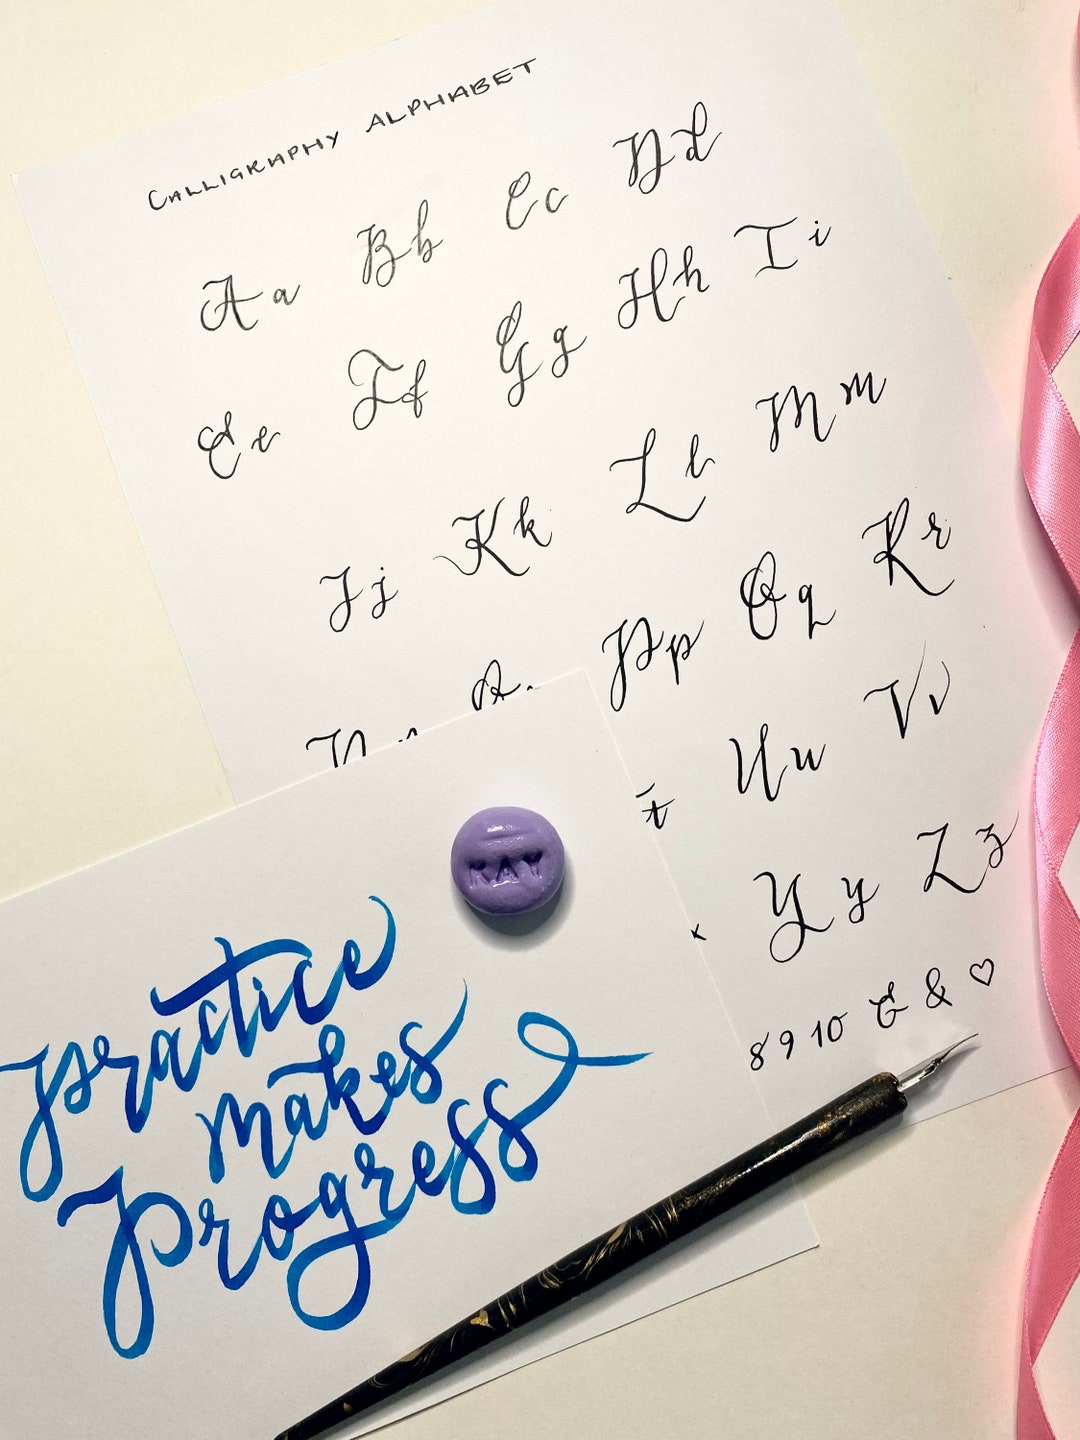 CALLIGRAPHY ALPHABET
Aa Bb Cc Dd
Ee Ff Gg Hh Ii
Jj Kk Ll Mm
Pp Qq Rr
t Uu Vv
Yy Zz
8 9 10 & & ♡
KAY
practice
makes
Progress